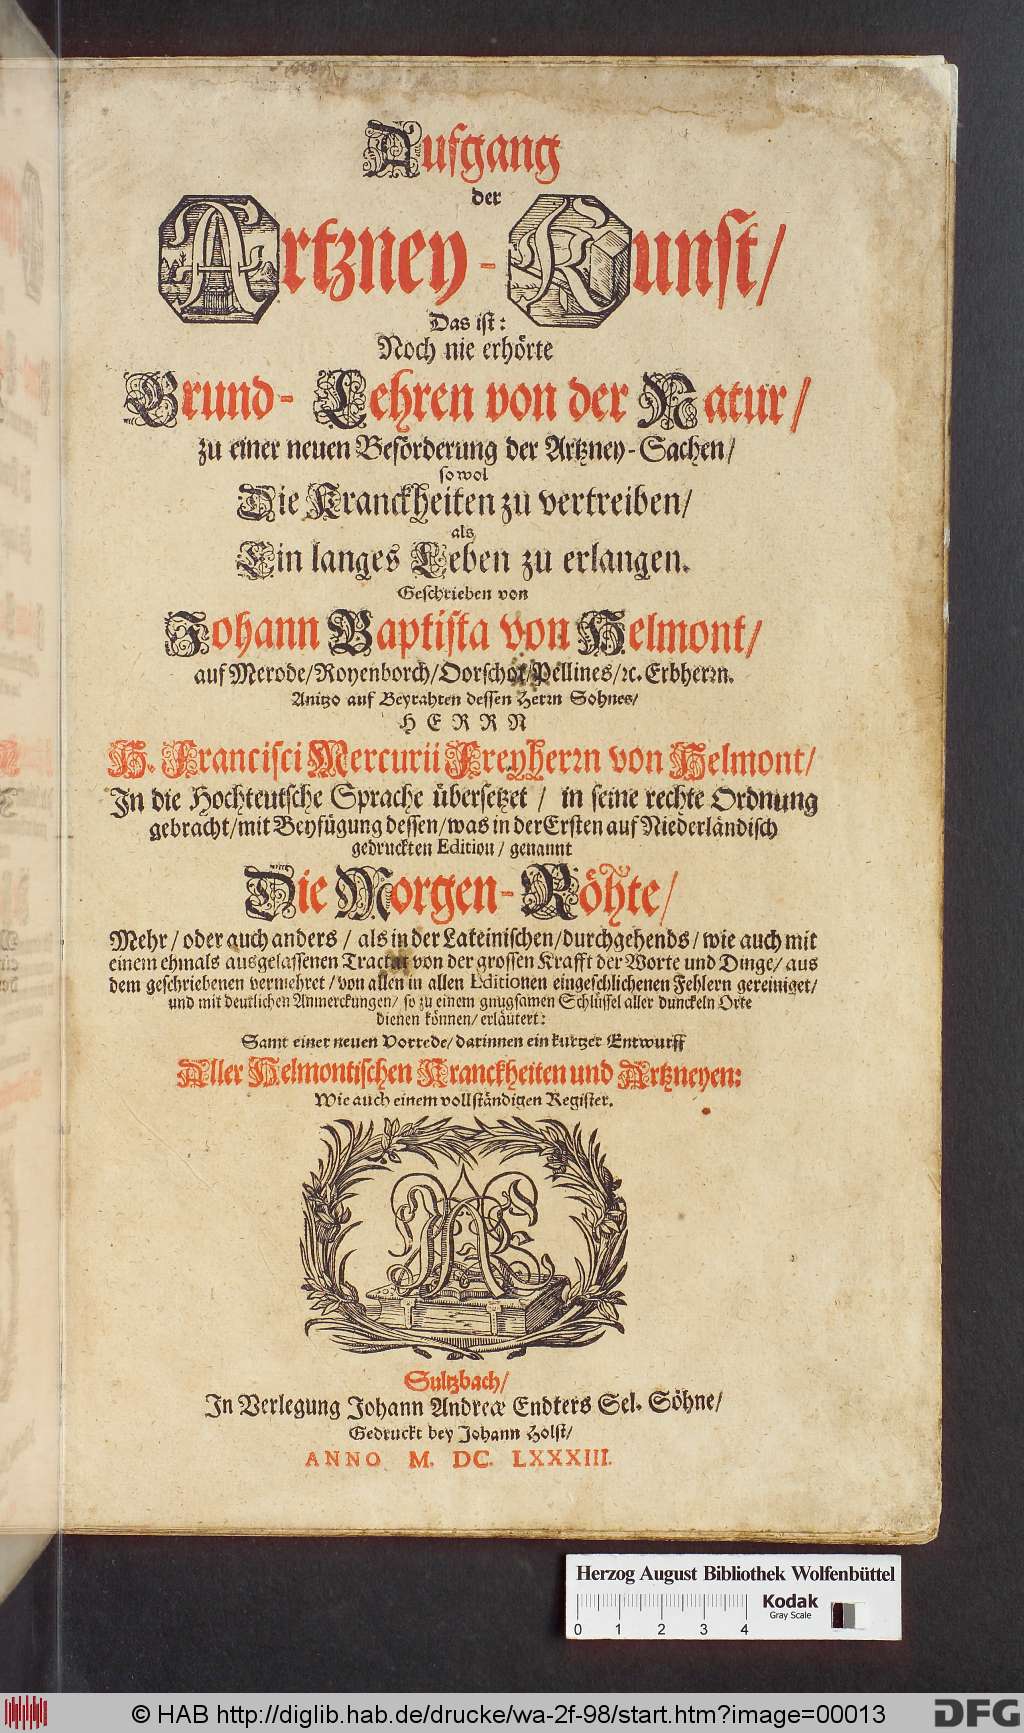 Aufgang
der
Artzney-Kunst/
Das ist:
Noch nie erhörte
Grund-Lehren von der Natur/
zu einer neuen Beförderung der Artzney-Sachen/
so wol
Die Kranckheiten zu vertreiben/
als
Ein langes Leben zu erlangen.
Geschrieben von
Johann Baptista von Helmont/
auf Merode/Royenborch/Oorschot/Pellines/ꝛc. Erbherrn.
Anitzo auf Beyrahten dessen Herrn Sohnes/
HERRN
H. Francisci Mercurii Freyherrn von Helmont/
In die Hochteutsche Sprache übersetzet/ in seine rechte Ordnung
gebracht/mit Beyfügung dessen/was in der Ersten auf Niederländisch
gedruckten Edition/ genannt
Die Morgen-Röhte/
Mehr/ oder auch anders/ als in der Lateinischen/durchgehends/ wie auch mit
einem ehmals ausgelassenen Tractat von der grossen Krafft der Worte und Dinge/ aus
dem geschriebenen vermehret/ von allen in allen Editionen eingeschlichenen Fehlern gereiniget/
und mit deutlichen Anmerckungen/ so zu einem gnugsamen Schlüssel aller dunckeln Orte
dienen können/ erläutert:
Samt einer neuen Vorrede/ darinnen ein kurtzer Entwurff
Aller Helmontischen Kranckheiten und Artzneyen:
Wie auch einem vollständigen Register.
Sultzbach/
In Verlegung Johann Andreæ Endters Sel. Söhne/
Gedruckt bey Johann Holst/
ANNO M. DC. LXXXIII.
Herzog August Bibliothek Wolfenbüttel
Kodak
Gray Scale
0 1 2 3 4
© HAB http://diglib.hab.de/drucke/wa-2f-98/start.htm?image=00013
DFG